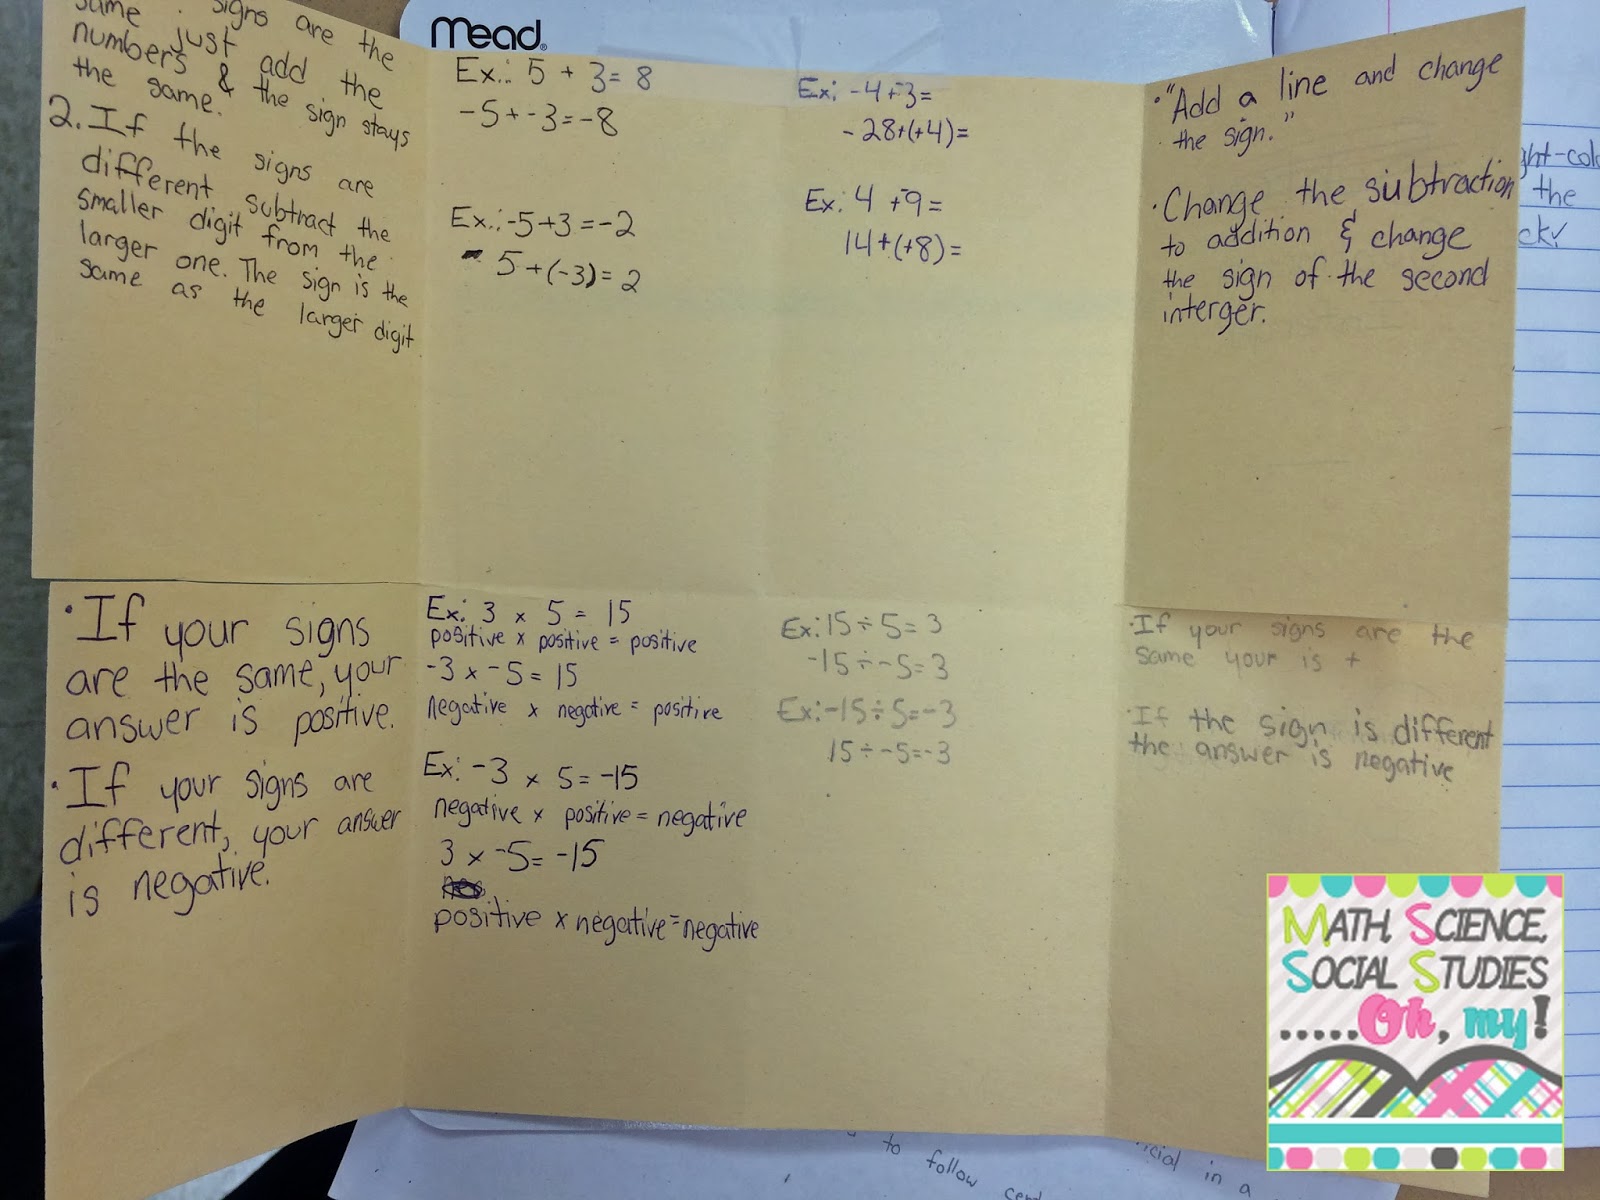 Mead
same. signs are the
just add the
numbers & the sign stays
the same.
2. If the signs are
different subtract the
smaller digit from the
larger one. The sign is the
same as the larger digit
Ex.: 5 + 3 = 8
-5 + -3 = -8
Ex.: -5+3 = -2
5 + (-3) = 2
Ex: -4 + -3 =
-28+(+4)=
Ex: 4 + -9 =
14+(+8)=
• "Add a line and change
the sign."
• Change the subtraction
to addition & change
the sign of the second
interger.
• If your signs
are the same, your
answer is positive.
• If your signs are
different, your answer
is negative.
Ex: 3 x 5 = 15
positive x positive = positive
-3 x -5 = 15
negative x negative = positive
Ex: -3 x 5 = -15
negative x positive = negative
3 x -5 = -15
positive x negative = negative
Ex: 15 ÷ 5 = 3
-15 ÷ -5 = 3
Ex: -15 ÷ 5 = -3
15 ÷ -5 = -3
• If your signs are the
same your is +
• If the sign is different
the answer is negative
the
to follow
in a
MATH, SCIENCE,
SOCIAL STUDIES
.....Oh, my!